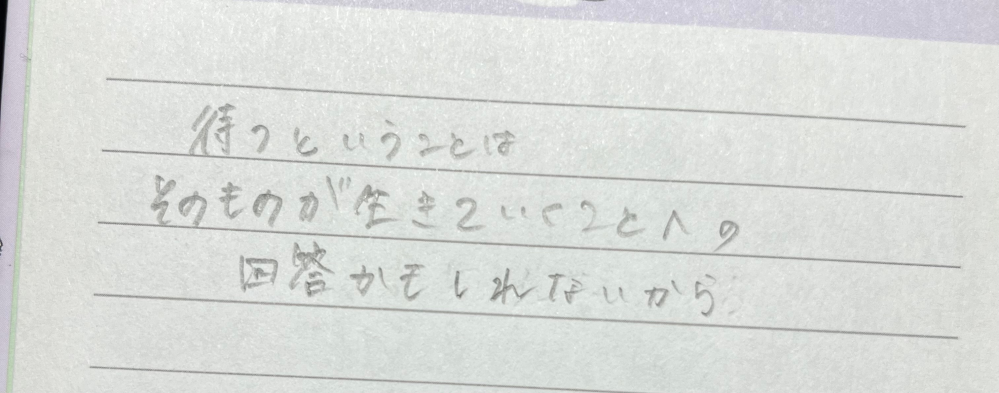 待つということは
そのものが生きていくことへの
回答かもしれないから